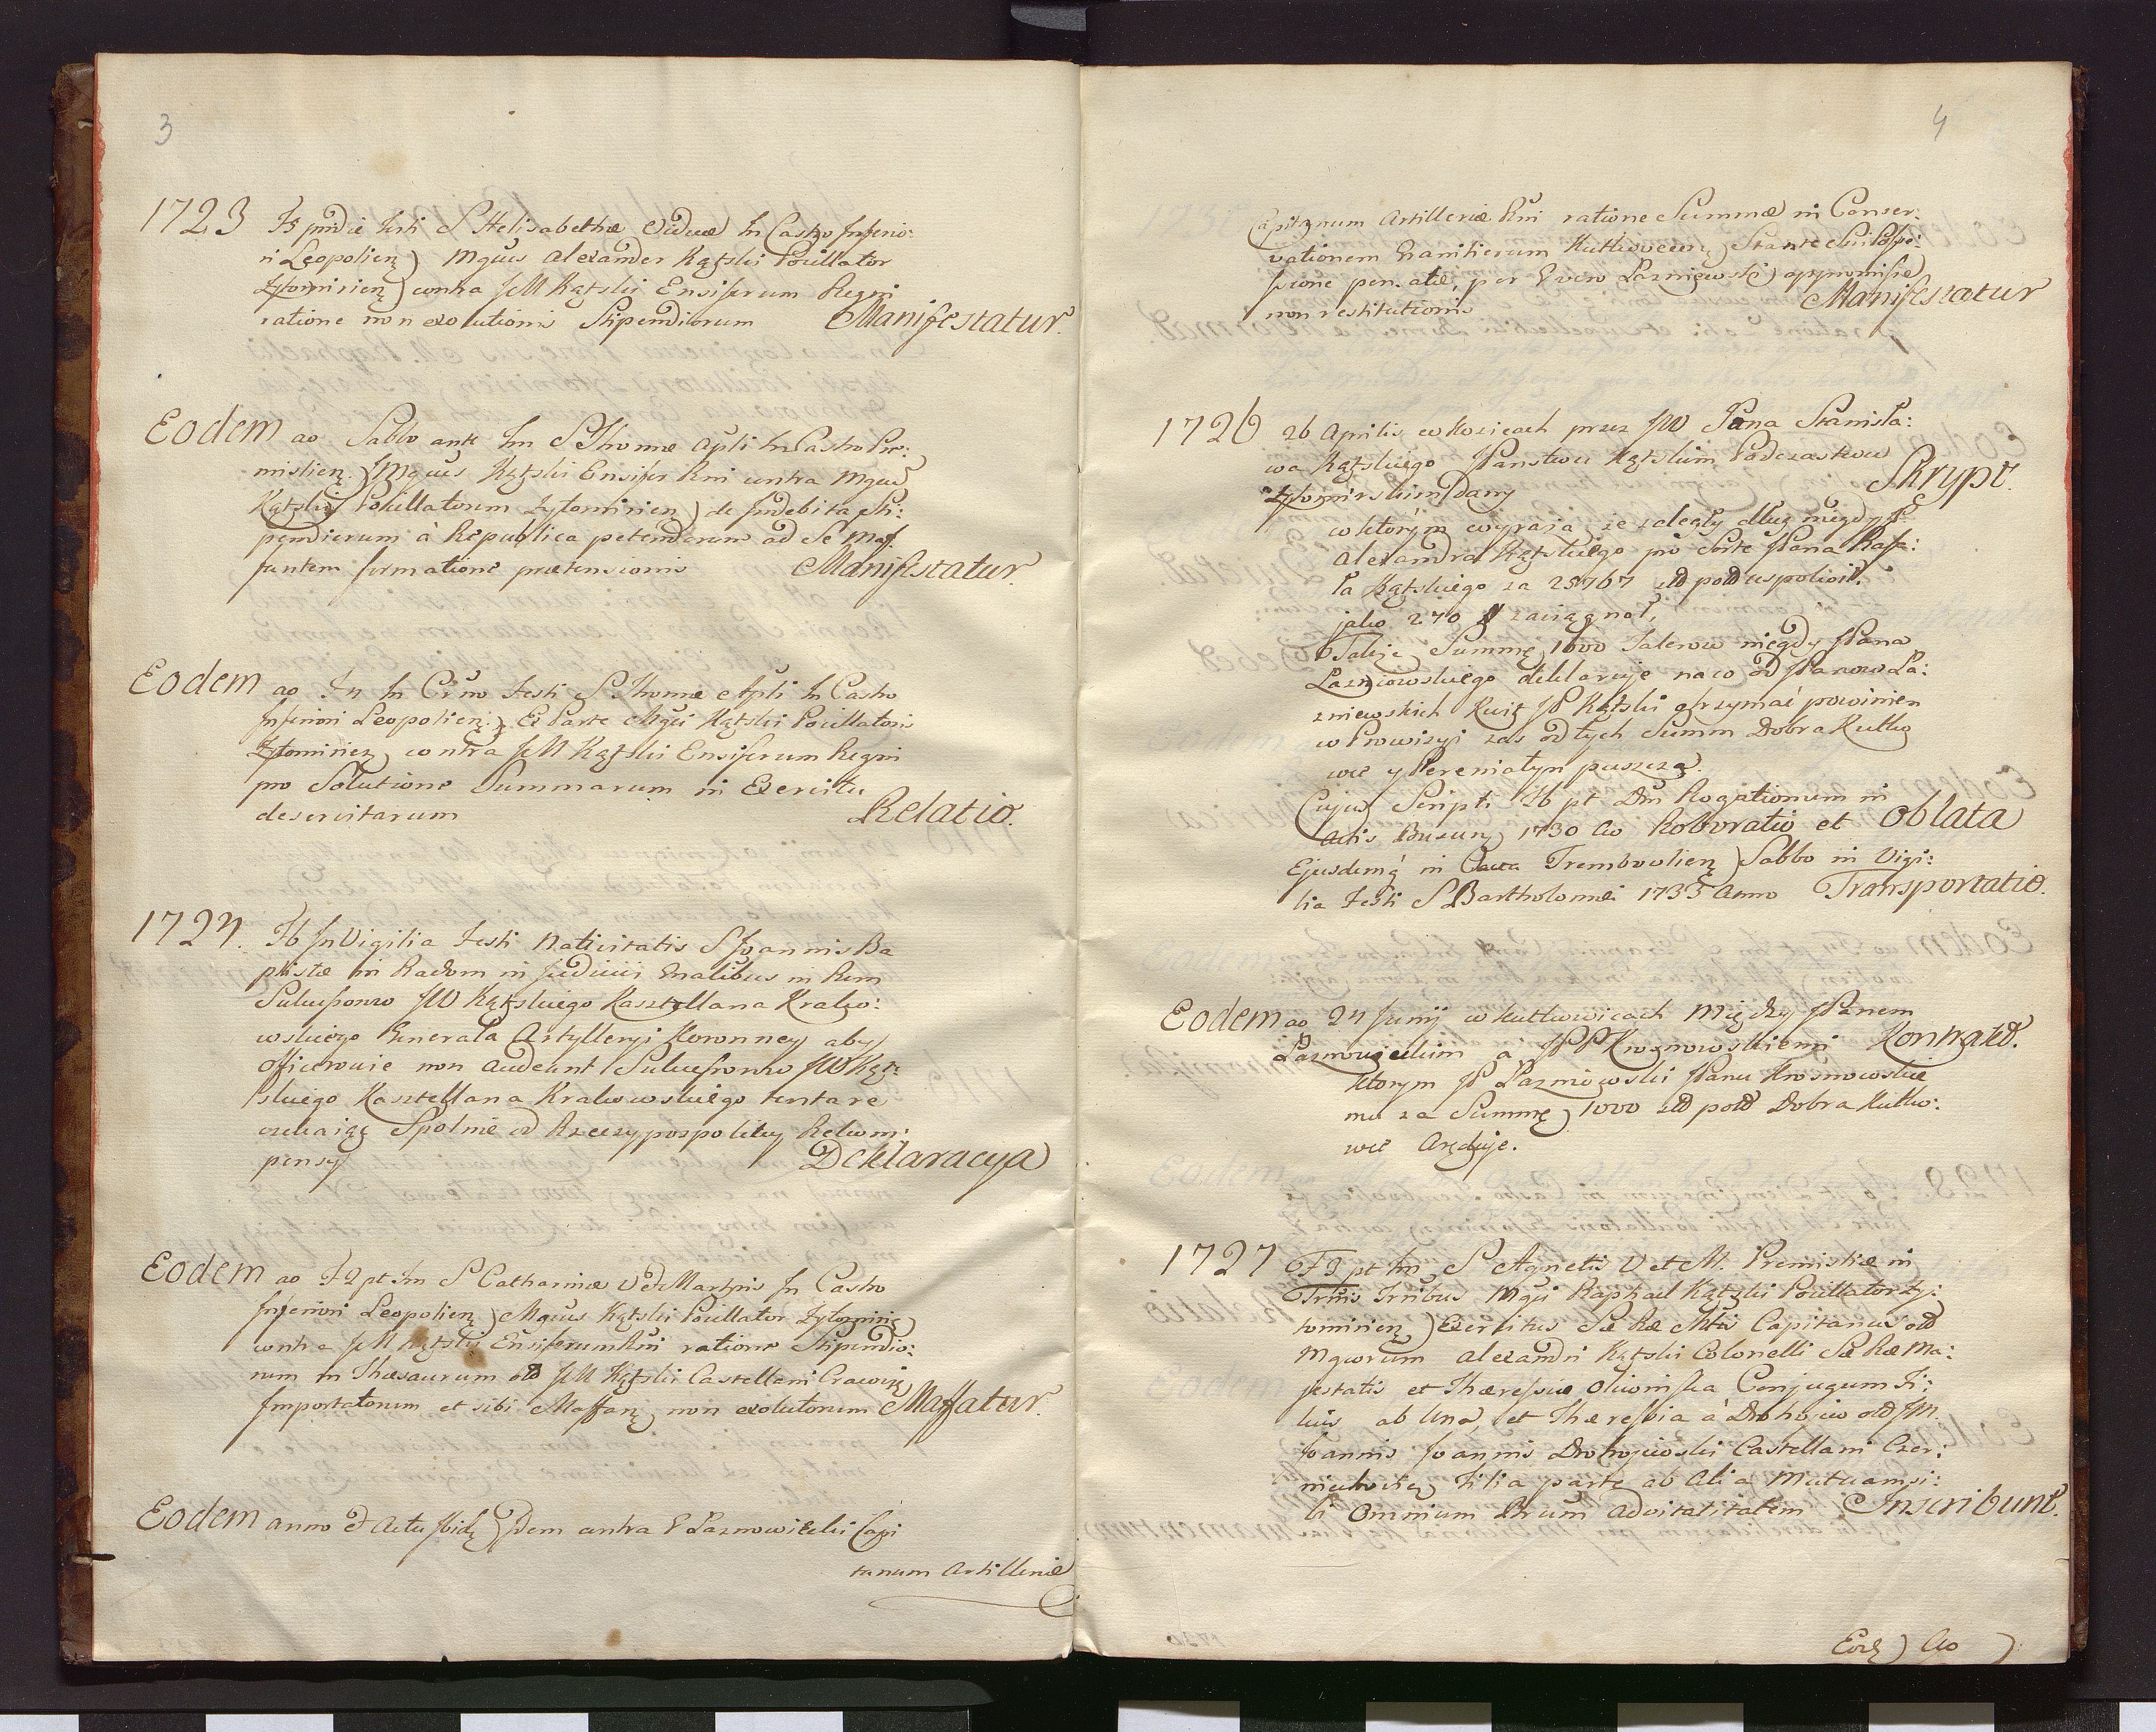 3
1723 F5 pridie festi S Helisabethæ Viduæ In Castro Inferio:
ri Leopolień Mgcus Alexander Kątski Pocillator
Zytomirień contra JM Kątski Ensiferum Regni
ratione non exolutionis Stipendiorum Manifestatur.
Eodem ao Sabbo ante fm S Thomæ Apli In Castro Pre:
mislień. JMgcus Kątski Ensifer Rni contra Mgcu
Kątski Pocillatorem Zytomirien de Indebita Sti:
pendiorum à Republica petendorum ad Se
formatione prætensionis Manifestatur.
Eodem ao F4 In Crno festi S. Thomæ Apli In Castro
Inferiori Leopolień. Ex Parte Mgci Kątski Pocillatoris
Zytomirień contra JM Kątski Ensiferum Regni
pro Solutione Summarum in Exercitu
deservitarum Relatio.
1724. F6 In Vigilia festi Nativitatis S Joannis Ba
ptistæ in Radom in Judiciis Gnalibus in Rem
Sukcessorow JW Kątskiego Kasztellana Krako:
wskiego Generała Artylleryi Koronney aby
Officerowie non audeant Sukcessorow JW Kąt:
skiego Kasztellana Krakowskiego tentare
czekaiąc Spolnie od Rzeczypospolitey Rekom:
pensy Deklaracya
Eodem ao F2 pt fm S Catharinæ V et Martyris In Castro
Inferiori Leopolień Mgcus Kątski Pocillator Zytomirię
contra JM Kątski Ensiferum Rni ratione Stipendio:
rum in Thesaurum olb JM Kątski Castellani Cracovię
Importatorum et sibi Maffanę non exolutorum Maffatur.
Eodem anno et Actu Ibidę Idem contra G Łaznowiecki Capi
taneum Artilleriæ
4
Capitaneum Artilleriæ Rni ratione Summæ in Conser:
vationem Granitierum Kutkowcenę Stante Sui Posse:
ssione per G vero Łazniewski appromissæ
non restitutionis Manifestatur
1726 26 Aprilis w Kozicach przez JW Pana Stanisła:
wa Kątskiego JPanstwu Kątskim Podczastwu
Zytomirskim Dany Skrypt.
w ktorym wyraza ze zaległy dług niegdy JP.
Alexandra Kątskiego pro Sorte JPana Rafa:
ła Kątskiego za 25767 zło pol
jako 270 zaciągnoł,
Także Summę 1000 Talerow niegdy JPana
Łazniowskiego deklaruje na co od JPanow Ła:
zniewskich Kwit JP Kątski otrzymać powinien
w Prowizyi zas od tych Summ Dobra Kutko
wce y Pereniatyn puszcza.
Cujus Scripti F6 pt Dm Rogationum in
Actis Buscenę 1730 Ao Roboratio et Oblata
Ejusdemq́ in Trembowlienę Sabbo in Vigi:
lia Festi S Bartholomei 1735 Anno Transportatio.
Eodem ao 24 Junij w Kutkowicach Między JPanem
Łaznowieckim a JPP Krosnowskiemi Kontrakt.
ktorym JP Łazniowski JPanu Krosnowskie
mu za Summę 1000 zło pol Dobra Kutko:
wce Aręduje.
1727 F3 pt fm S Agnetis V et M. Premisliæ in
Trnis Irribus Mgci Raphael Kątski Pocillator Zy:
tomirienę Exercitus Sæ Ræ Mtis Capitanus olb
Mgcorum Alexandri Kątski Colonelli Sæ Ræ Ma:
jestatis et Theressiæ Olivinska Conjugum Fi:
lius ab Una, et Theressia à Drohojow olb JM.
Joannis Joannis Drohojowski Castellani Czer:
niechovienę Filia parte ab Alia Mutuam si:
bi Omnium Bnrum Advitalitatem Inscribunt.
Eodę Ao